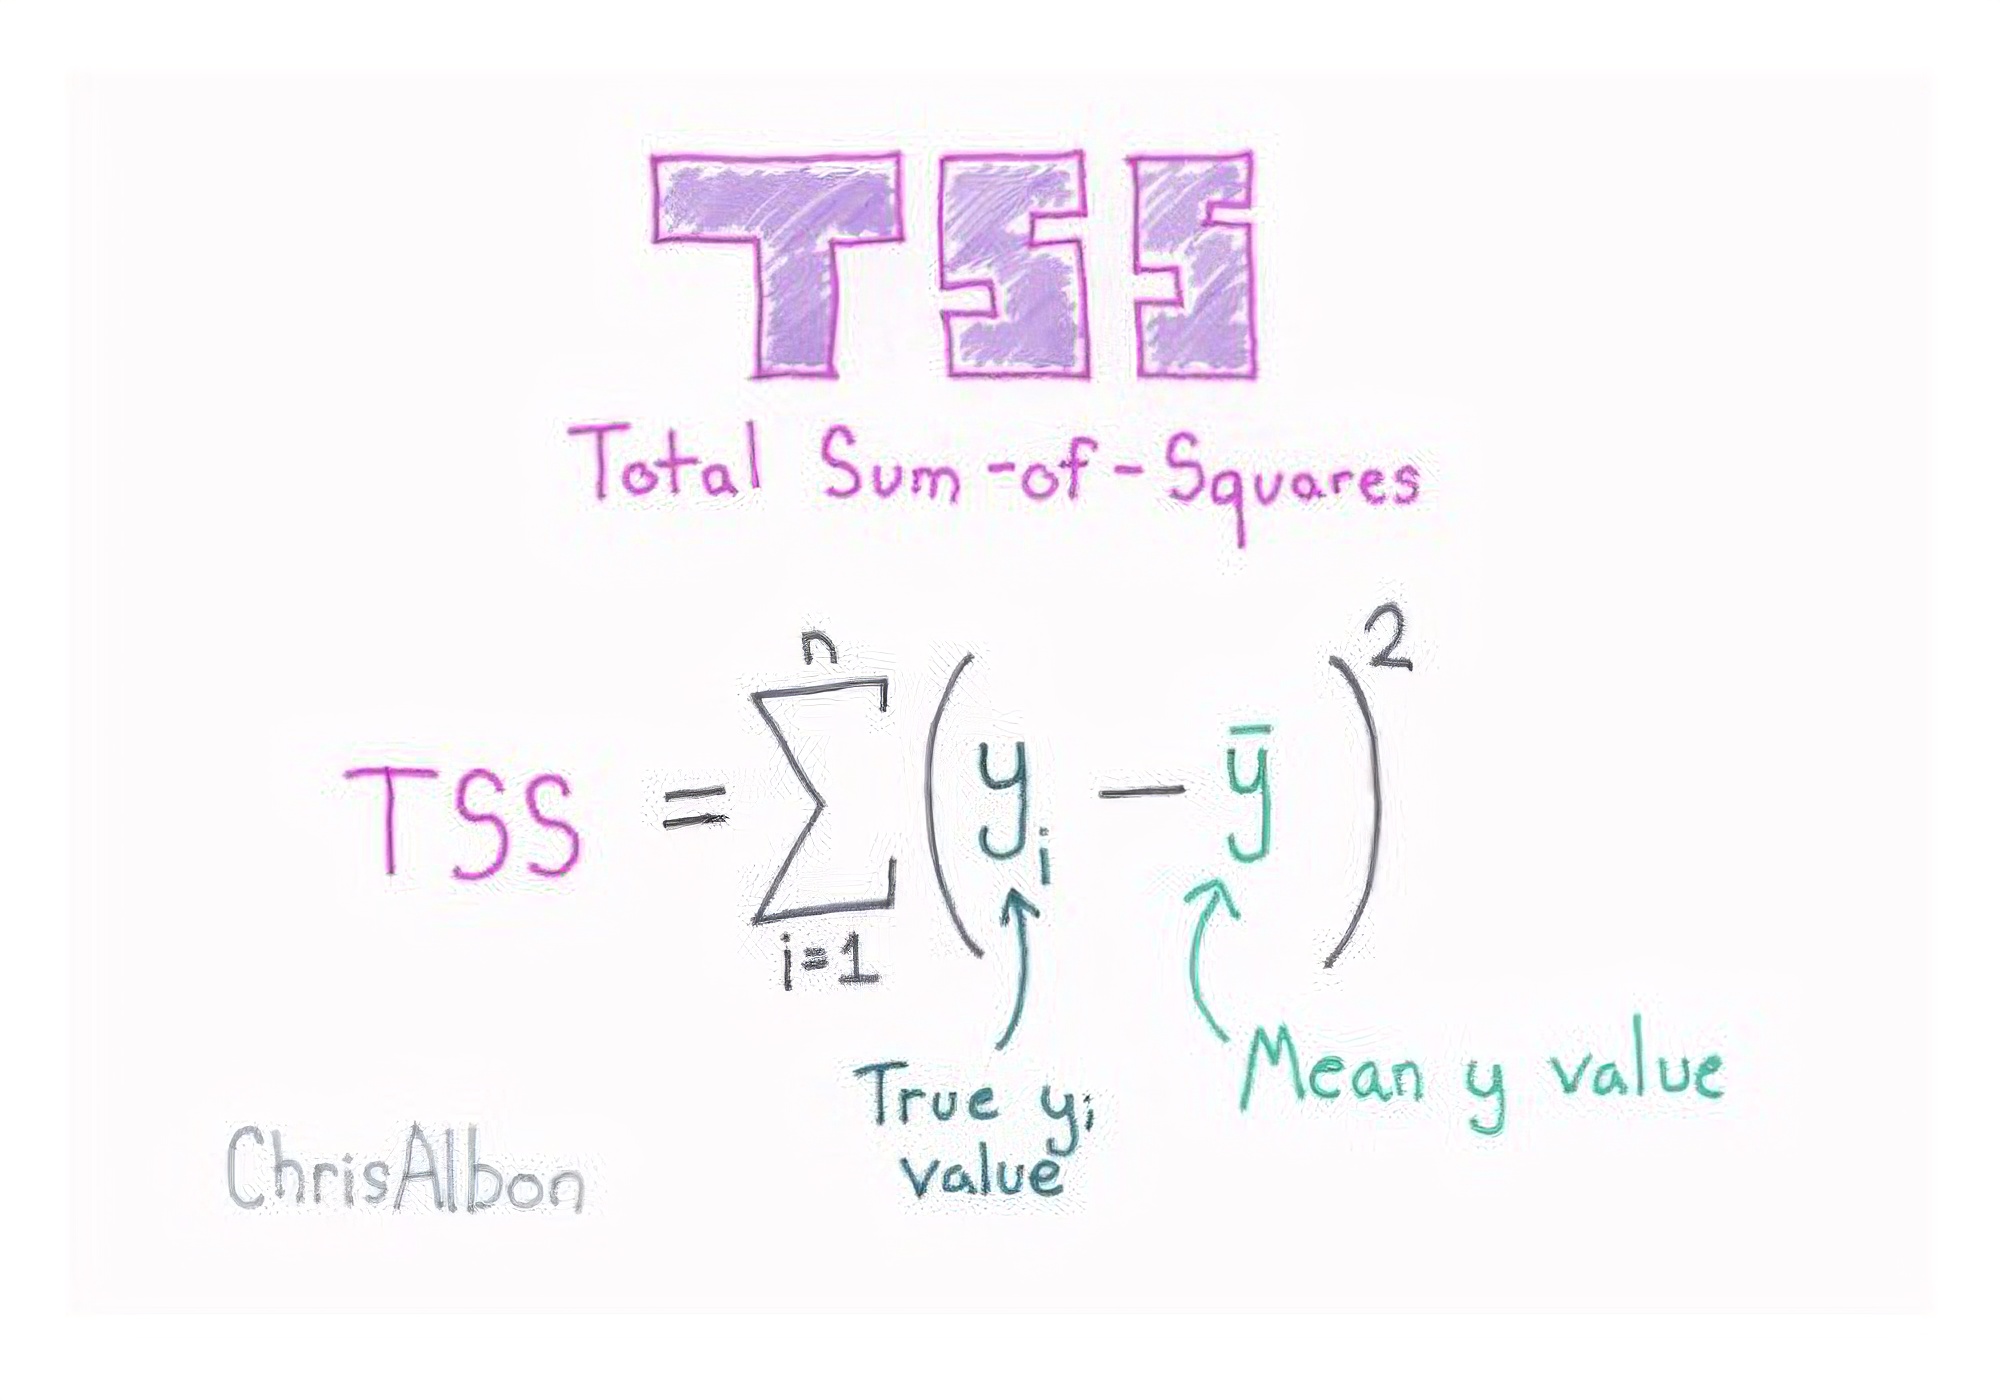 TSS
Total Sum-of-Squares
TSS = n∑i=1 (yi − ȳ)²
True yi
value
Mean y value
ChrisAlbon